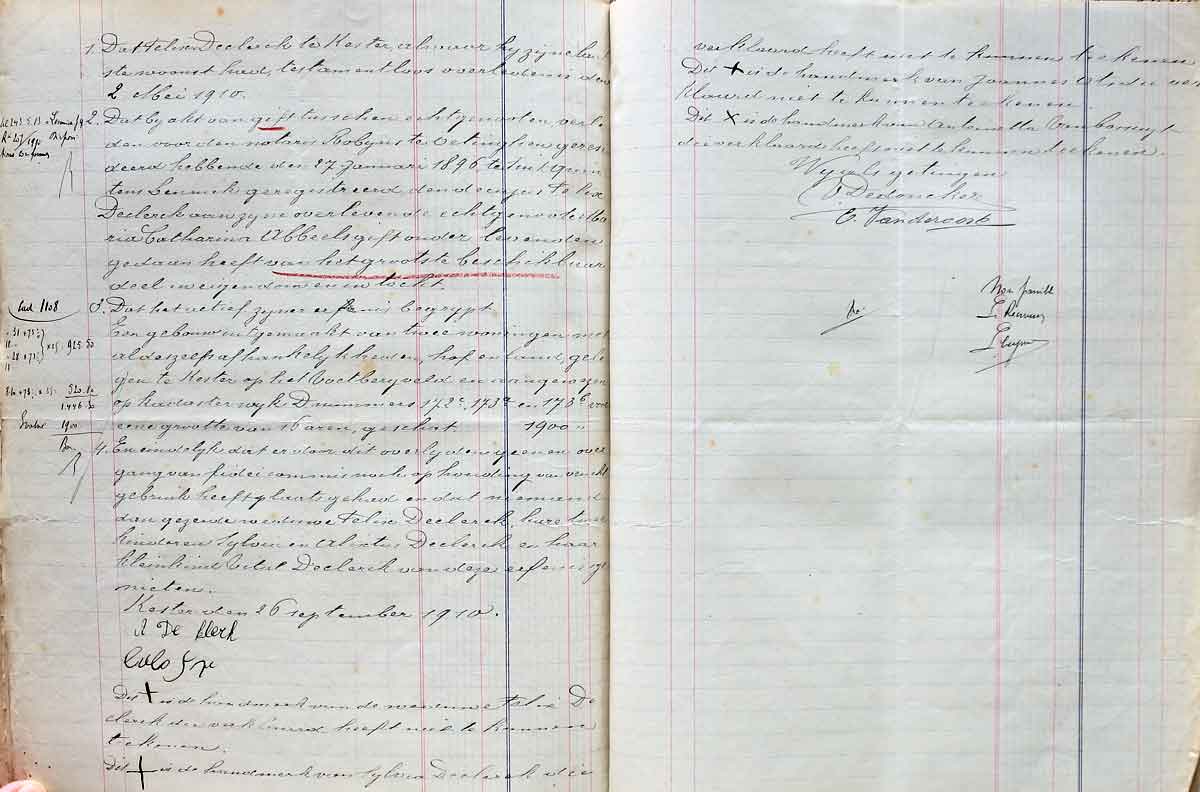 1. Dat Felix Declerck te Kester, alwaar hy zyne laat
ste woonst had, testamentloos overleden is den
2 Mei 1910.
2. Dat by akt van gift tusschen echtgenooten, verle
den voor den notaris Robyns te Oetinghen geres
deerd hebbende den 27 Januari 1896, te Sint Quin
tens Lennick geregistreerd den decujus Felix
Declerck aan zyne overlevende echtgenoote Ma
ria Catharina Abbeels gift onder levenden
gedaan heeft van het grootste beschikbaar
deel in eigendom en in tocht.
Lad 1108
3. Dat het actief zyner erfenis begrypt
Een gebouw uitgemaakt van twee woningen met
al deszelfs afhankelykheden, hof en land, gele
gen te Kester op het Voetbergveld en aangewezen
op kadaster wyk D nummers 172c, 173a en 173b voor
eene grootte van 16 aren, geschat 1900 "
925.50
520.80
1.446.30
1900
4. En eindelyk dat er door dit overlyden geenen over
gang van fideicommis noch ophouding van vrucht
gebruik heeft plaats gehad en dat niemand
dan gezegde weduwe Felix Declerck, hare twee
kinderen Sylvia en Alixtus Declerck en haar
kleinkind Vital Declerck van deze erfenis ge
nieten.
Kester den 26 september 1910.
A De Klerk
Dit + is de handmerk van de weduwe Felix De
clerck die verklaard heeft niet te kunnen
teekenen.
Dit + is de handmerk van Sylvia Declerck die
verklaard heeft niet te kunnen teekenen
Dit + is de handmerk van Joannes die ver
klaard niet te kunnen teekenen.
Dit X is de handmerk van Antonetta
die verklaard heeft niet te kunnen teekenen.
Wy als getuigen
Dedoncker
E. Vandercost